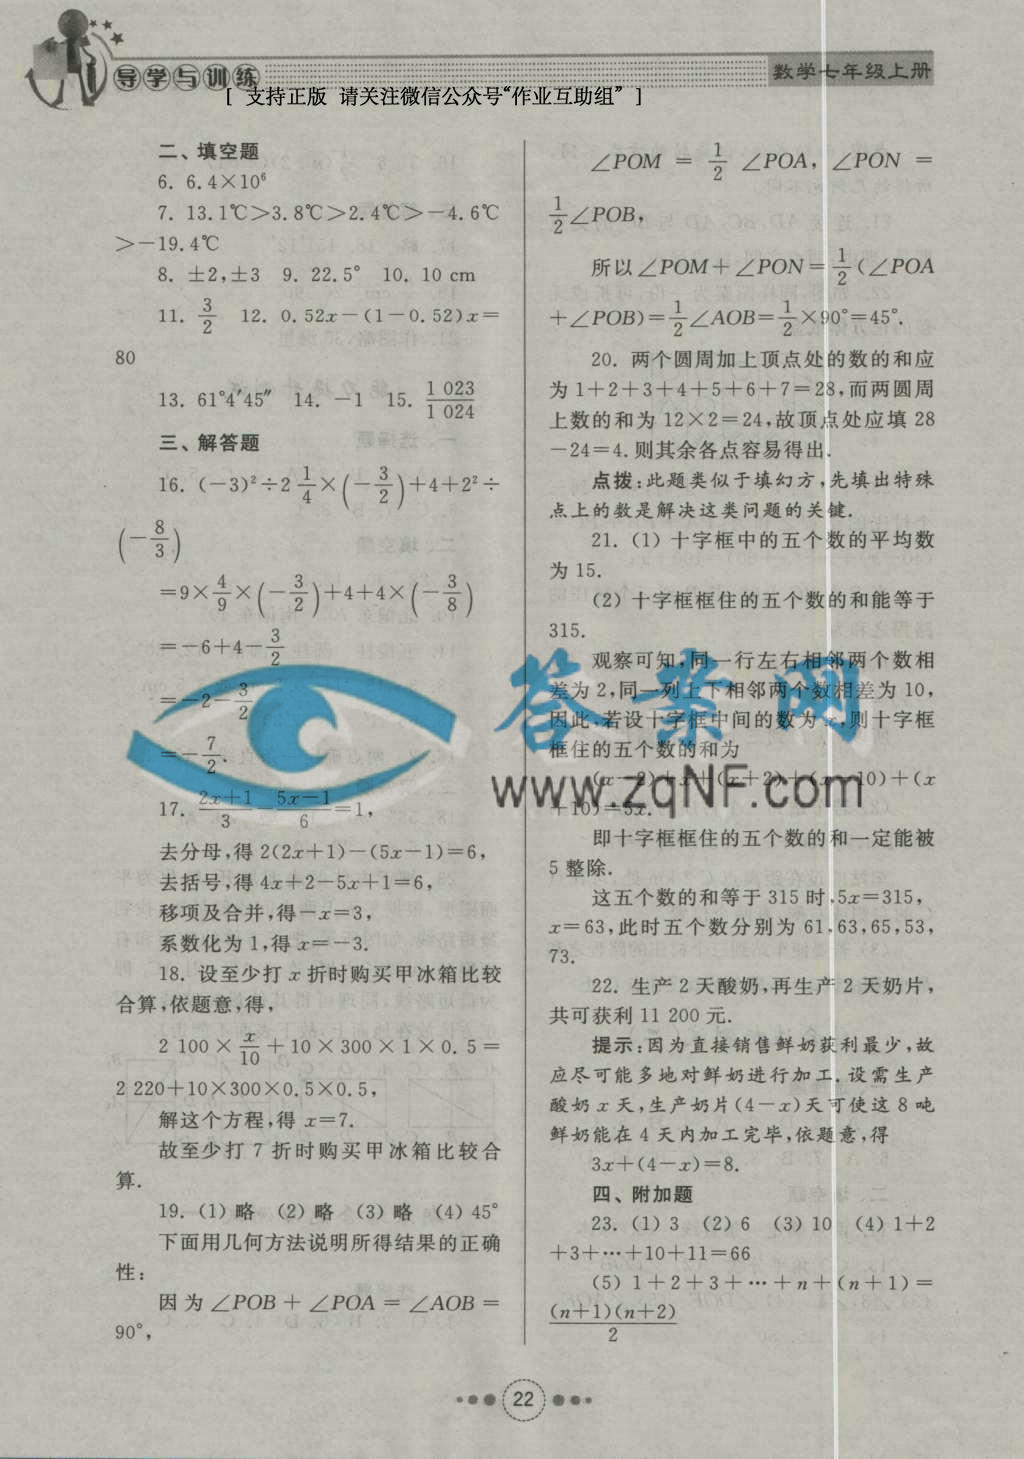 导学与训练
数学七年级上册
[ 支持正版 请关注微信公众号“作业互助组” ]
二、填空题
6. 6.4×10⁶
7. 13.1℃>3.8℃>2.4℃>-4.6℃
>-19.4℃
8. ±2,±3 9. 22.5° 10. 10 cm
11. 3/2 12. 0.52x-(1-0.52)x=
80
13. 61°4′45″ 14. -1 15. 1 023/1 024
三、解答题
16. (-3)²÷2 1/4×(-3/2)+4+2²÷
(-8/3)
=9×4/9×(-3/2)+4+4×(-3/8)
=-6+4-3/2
=-2-3/2
=-7/2.
17. (2x+1)/3-(5x-1)/6=1,
去分母,得 2(2x+1)-(5x-1)=6,
去括号,得 4x+2-5x+1=6,
移项及合并,得-x=3,
系数化为 1,得 x=-3.
18. 设至少打 x 折时购买甲冰箱比较
合算,依题意,得,
2 100×x/10+10×300×1×0.5=
2 220+10×300×0.5×0.5,
解这个方程,得 x=7.
故至少打 7 折时购买甲冰箱比较合
算.
19. (1)略 (2)略 (3)略 (4)45°
下面用几何方法说明所得结果的正确
性:
因为∠POB+∠POA=∠AOB=
90°,
∠POM=1/2∠POA,∠PON=
1/2∠POB,
所以∠POM+∠PON=1/2(∠POA
+∠POB)=1/2∠AOB=1/2×90°=45°.
20. 两个圆周加上顶点处的数的和应
为 1+2+3+4+5+6+7=28,而两圆周
上数的和为 12×2=24,故顶点处应填 28
-24=4. 则其余各点容易得出.
点拨:此题类似于填幻方,先填出特殊
点上的数是解决这类问题的关键.
21. (1)十字框中的五个数的平均数
为 15.
(2)十字框框住的五个数的和能等于
315.
观察可知,同一行左右相邻两个数相
差为 2,同一列上下相邻两个数相差为 10,
因此,若设十字框中间的数为 x,则十字框
框住的五个数的和为
(x-2)+x+(x+2)+(x-10)+(x
+10)=5x.
即十字框框住的五个数的和一定能被
5 整除.
这五个数的和等于 315 时,5x=315,
x=63,此时五个数分别为 61,63,65,53,
73.
22. 生产 2 天酸奶,再生产 2 天奶片,
共可获利 11 200 元.
提示:因为直接销售鲜奶获利最少,故
应尽可能多地对鲜奶进行加工. 设需生产
酸奶 x 天,生产奶片(4-x)天可使这 8 吨
鲜奶能在 4 天内加工完毕,依题意,得
3x+(4-x)=8.
四、附加题
23. (1)3 (2)6 (3)10 (4)1+2
+3+…+10+11=66
(5)1+2+3+…+n+(n+1)=
(n+1)(n+2)/2
答案网
www.zqNF.com
22